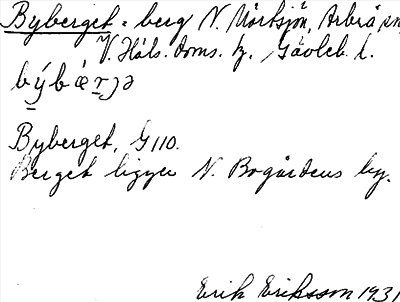 Byberget = berg N. Mörtsjön, Arbrå sn,
V. Häls. doms. hz., Gävleb. l.
býbǽrjə
Byberget, G 110.
Berget ligger N. Bogårdens by.
Erik Eriksson 1931